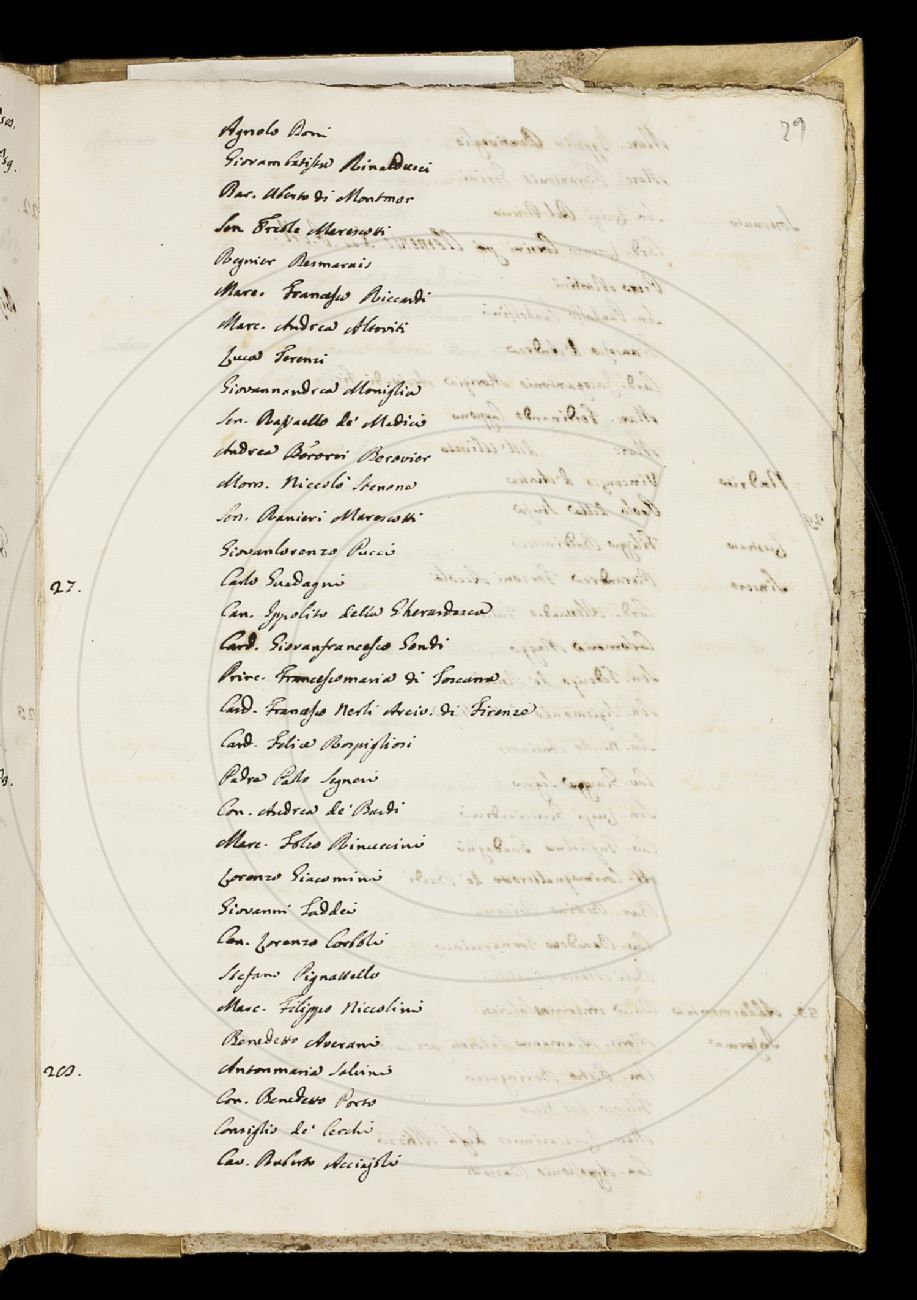 29
Agnolo Boni
Giovambatista Rinalducci
Bar. Uberto di Montmor
Sen. Ercole Marescotti
Regnier Desmarais
Marc. Francesco Riccardi
Marc. Andrea Altoviti
Luca Terenzi
Giovannandrea Moniglia
Sen. Raffaello de' Medici
Andrea Berovier
Mons. Niccolò Stenone
Sen. Ranieri Marescotti
Giovanlorenzo Pucci
27. Carlo Guadagni
Can. Ippolito della Gherardesca
Card. Giovanfrancesco Gondi
Princ. Francescomaria di Toscana
Card. Francesco Nerli Arciv. di Firenze
Card. Felice Rospigliosi
Padre Pallo Segneri
Con. Andrea de' Bardi
Marc. Folco Rinuccini
Lorenzo Giacomini
Giovanni Taddei
Can. Lorenzo Corboli
Stefano Pignattello
Marc. Filippo Niccolini
Benedetto Averani
28. Antonmaria Salvini
Con. Benedetto Porto
Consiglio de' Cerchi
Cav. Ruberto Acciajoli